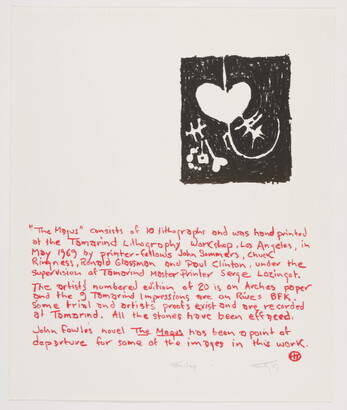 "The Magus" consists of 10 lithographs and was hand printed
at the Tamarind Lithography Workshop, Los Angeles, in
May 1969 by printer-fellows John Sommers, Chuck
Ringness, Ronald Glassman and Paul Clinton, under the
supervision of Tamarind Master Printer Serge Lozingot.
The artist's numbered edition of 20 is on Arches paper
and the 9 Tamarind Impressions are on Rives BFK.
Some trial and artist's proofs exist and are recorded
at Tamarind. All the stones have been effaced.
John Fowles' novel The Magus has been a point of
departure for some of the images in this work.